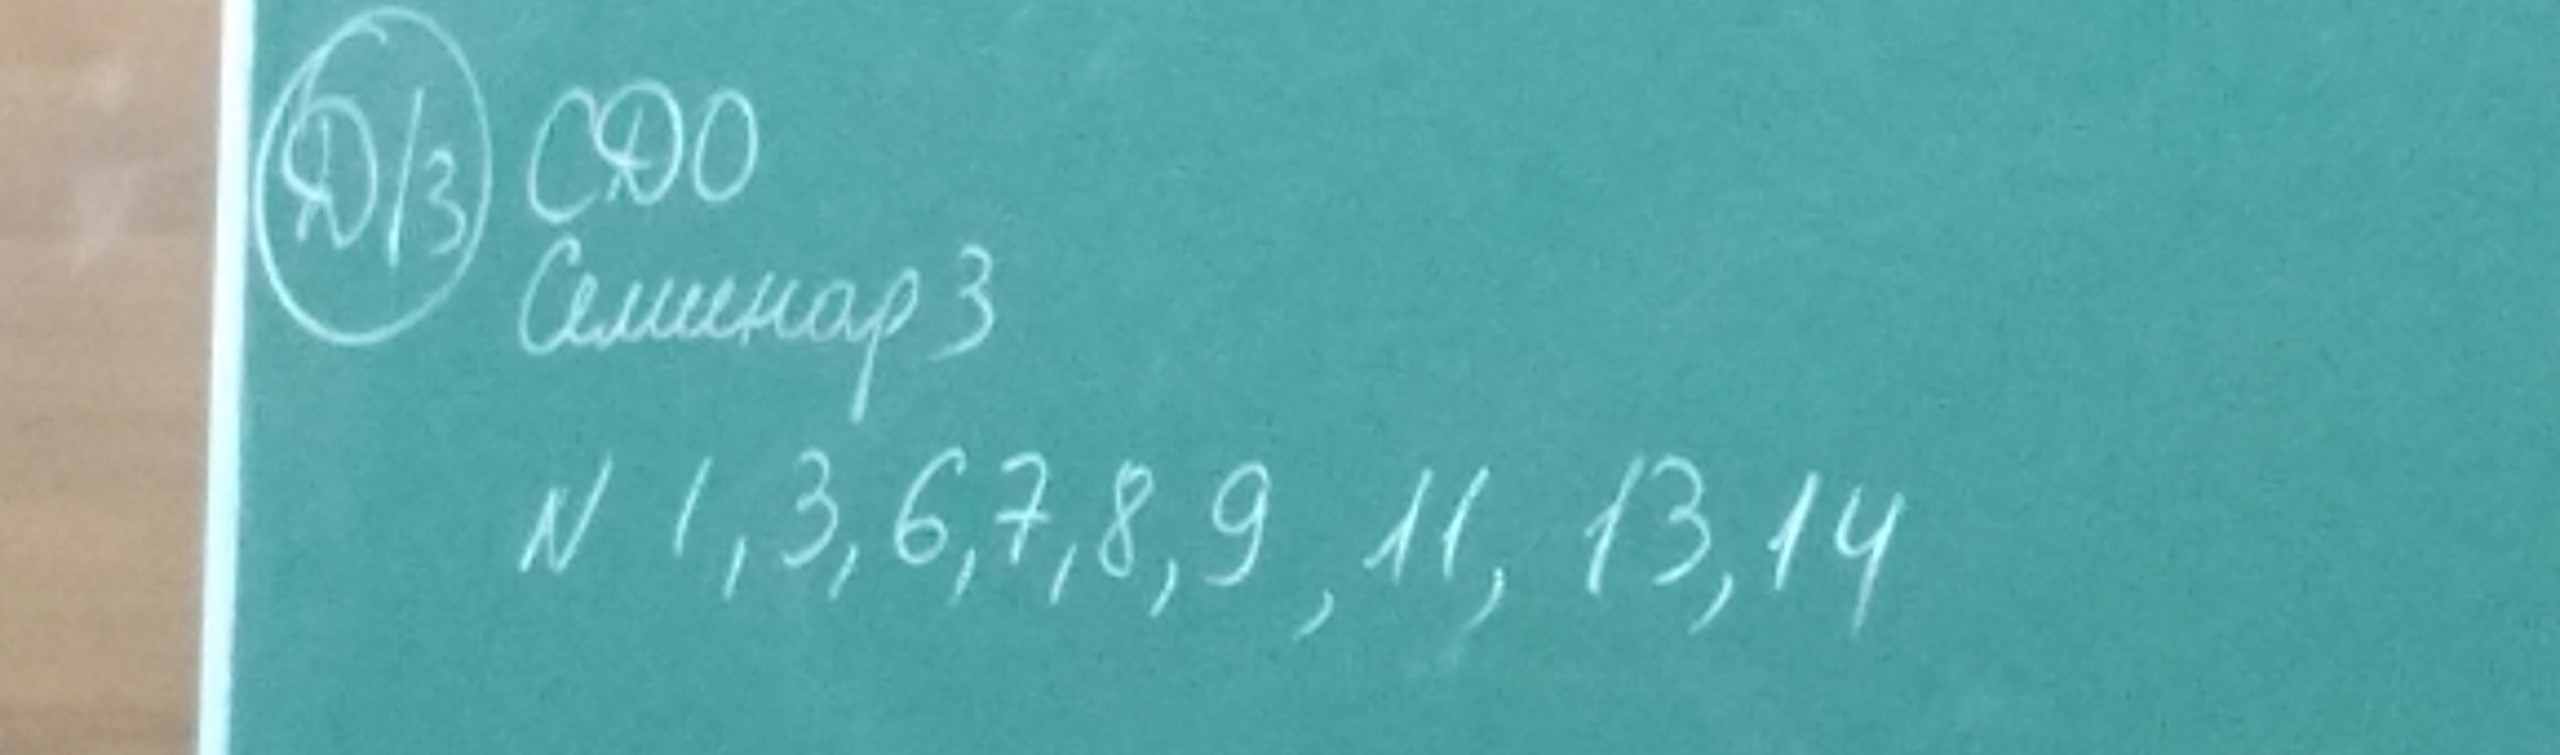 Д/З СДО
Семинар 3
N 1, 3, 6, 7, 8, 9, 11, 13, 14